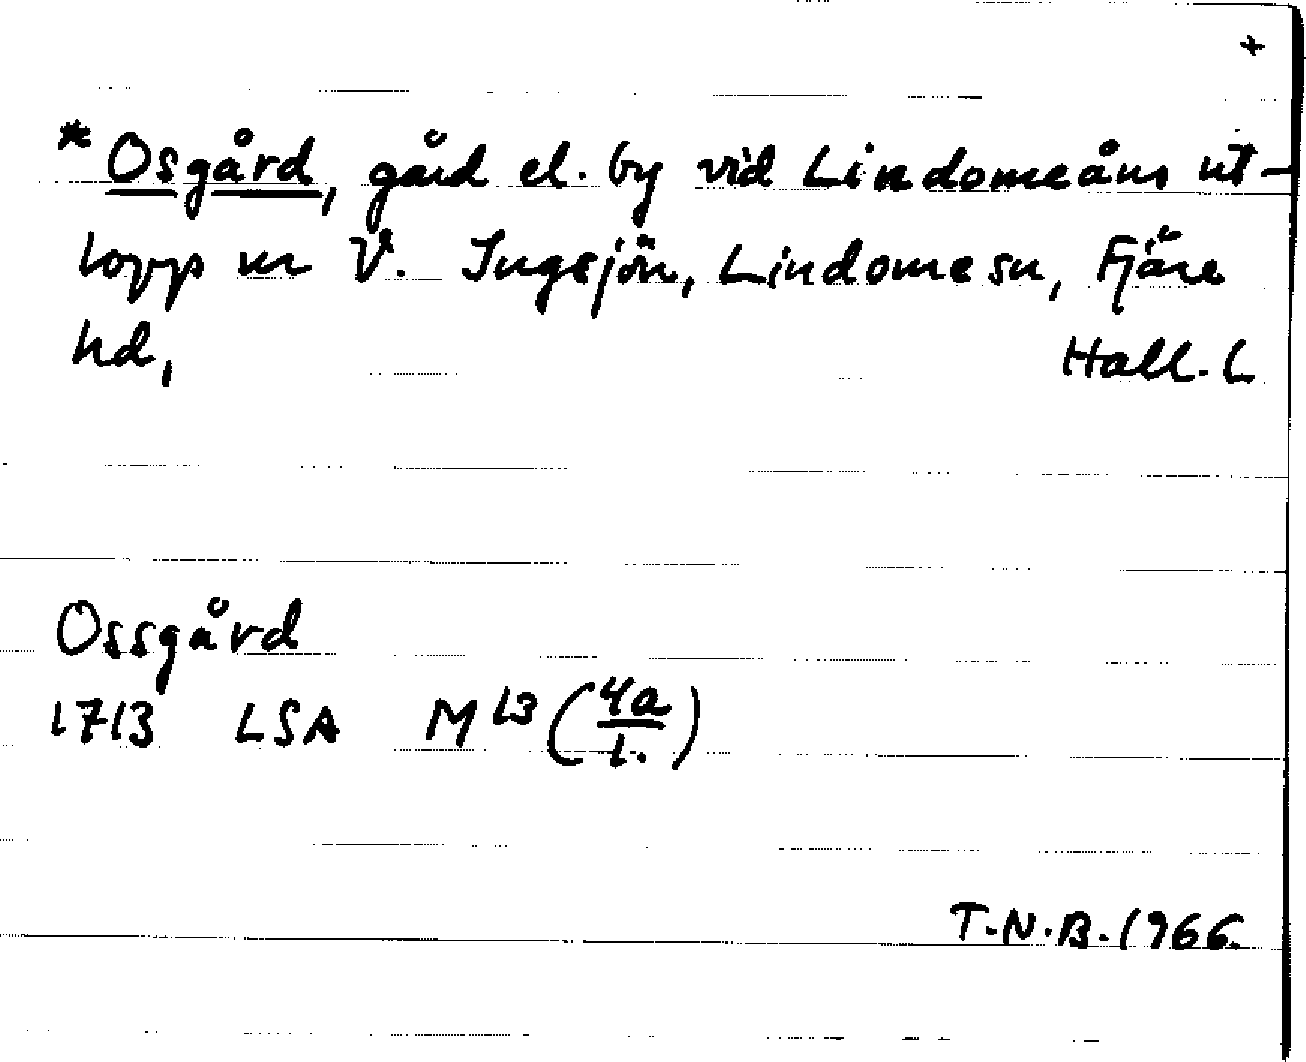 +
*Osgård, gård el. by vid Lindomeåns ut-
lopp ur V. Ingsjön, Lindome sn, Fjäre
hd, Hall. L
Ossgård
1713 LSA M 13 (4a/1.)
T.N.B. 1966.